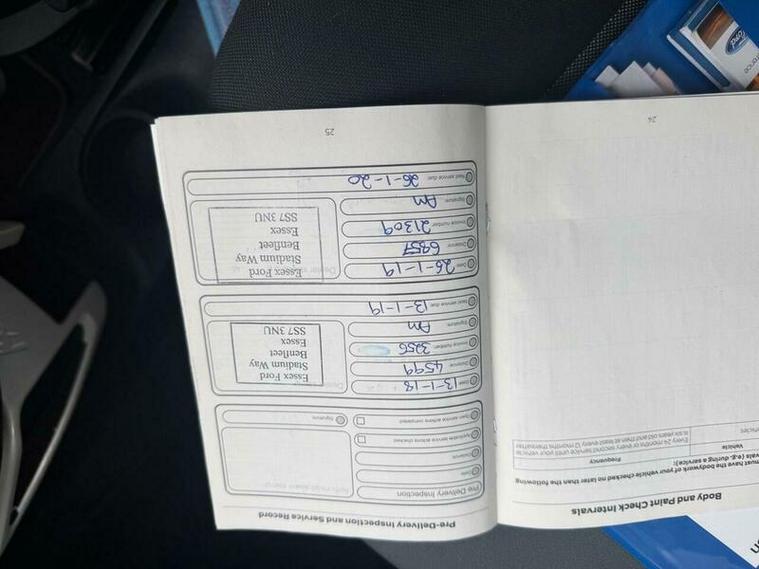 Pre-Delivery Inspection and Service Record
Pre Delivery Inspection
Date:
Distance:
Applicable service actions checked
Open service actions completed
Signature:
Date: 13-1-18
Distance: 4599
Invoice number: 3256
Signature: Am
Next service due: 13-1-19
Essex Ford
Stadium Way
Benfleet
Essex
SS7 3NU
Date: 26-1-19
Distance: 6857
Invoice number: 21309
Signature: Am
Next service due: 26-1-20
Essex Ford
Stadium Way
Benfleet
Essex
SS7 3NU
25
Body and Paint Check Intervals
must have the bodywork of your vehicle checked no later than the following
vals (e.g. during a service):
Vehicle
Frequency
hicles
Every 24 months or every second service until your vehicle
is six years old and then at least every 12 months thereafter
24
Ford